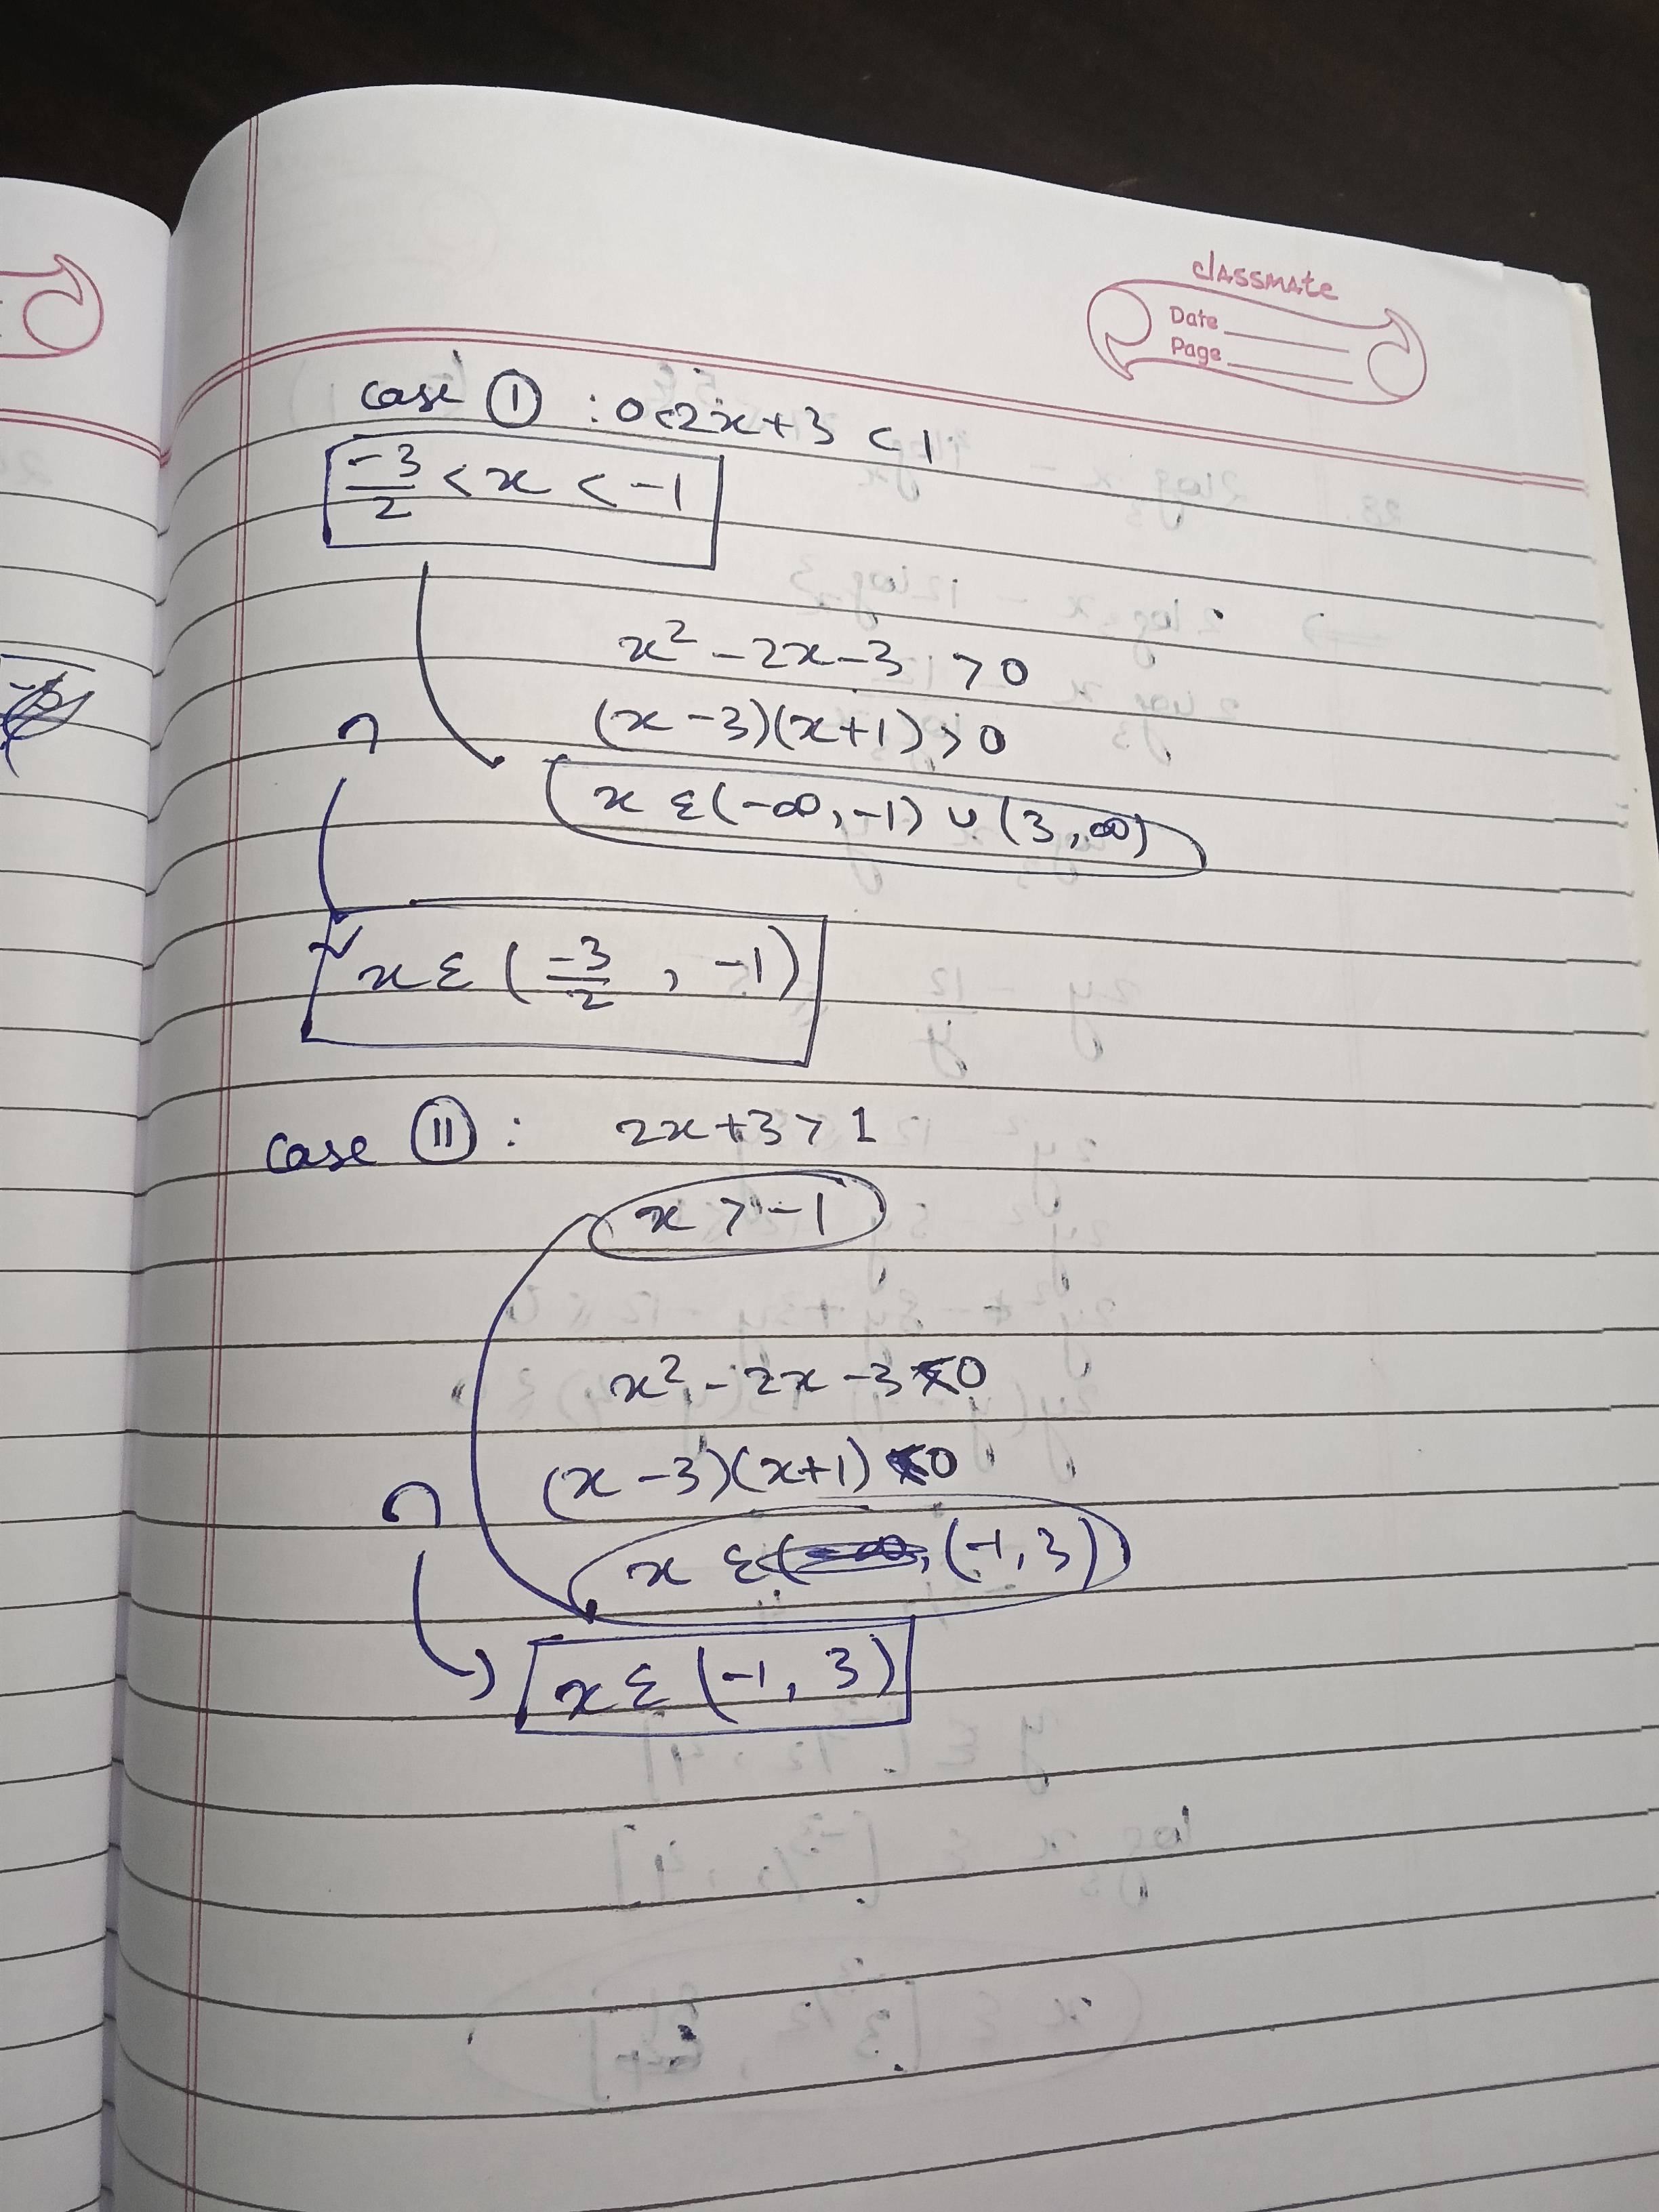 classmate
Date
Page
case ① : 0<2x+3 < 1
-3/2 < x < -1
x² - 2x - 3 > 0
(x-3)(x+1) > 0
∩
x ε (-∞, -1) ∪ (3, ∞)
x ε (-3/2, -1)
case ⑪ : 2x+3 > 1
x > -1
x² - 2x - 3 < 0
(x-3)(x+1) < 0
∩
x ε (-1, 3)
x ε (-1, 3)